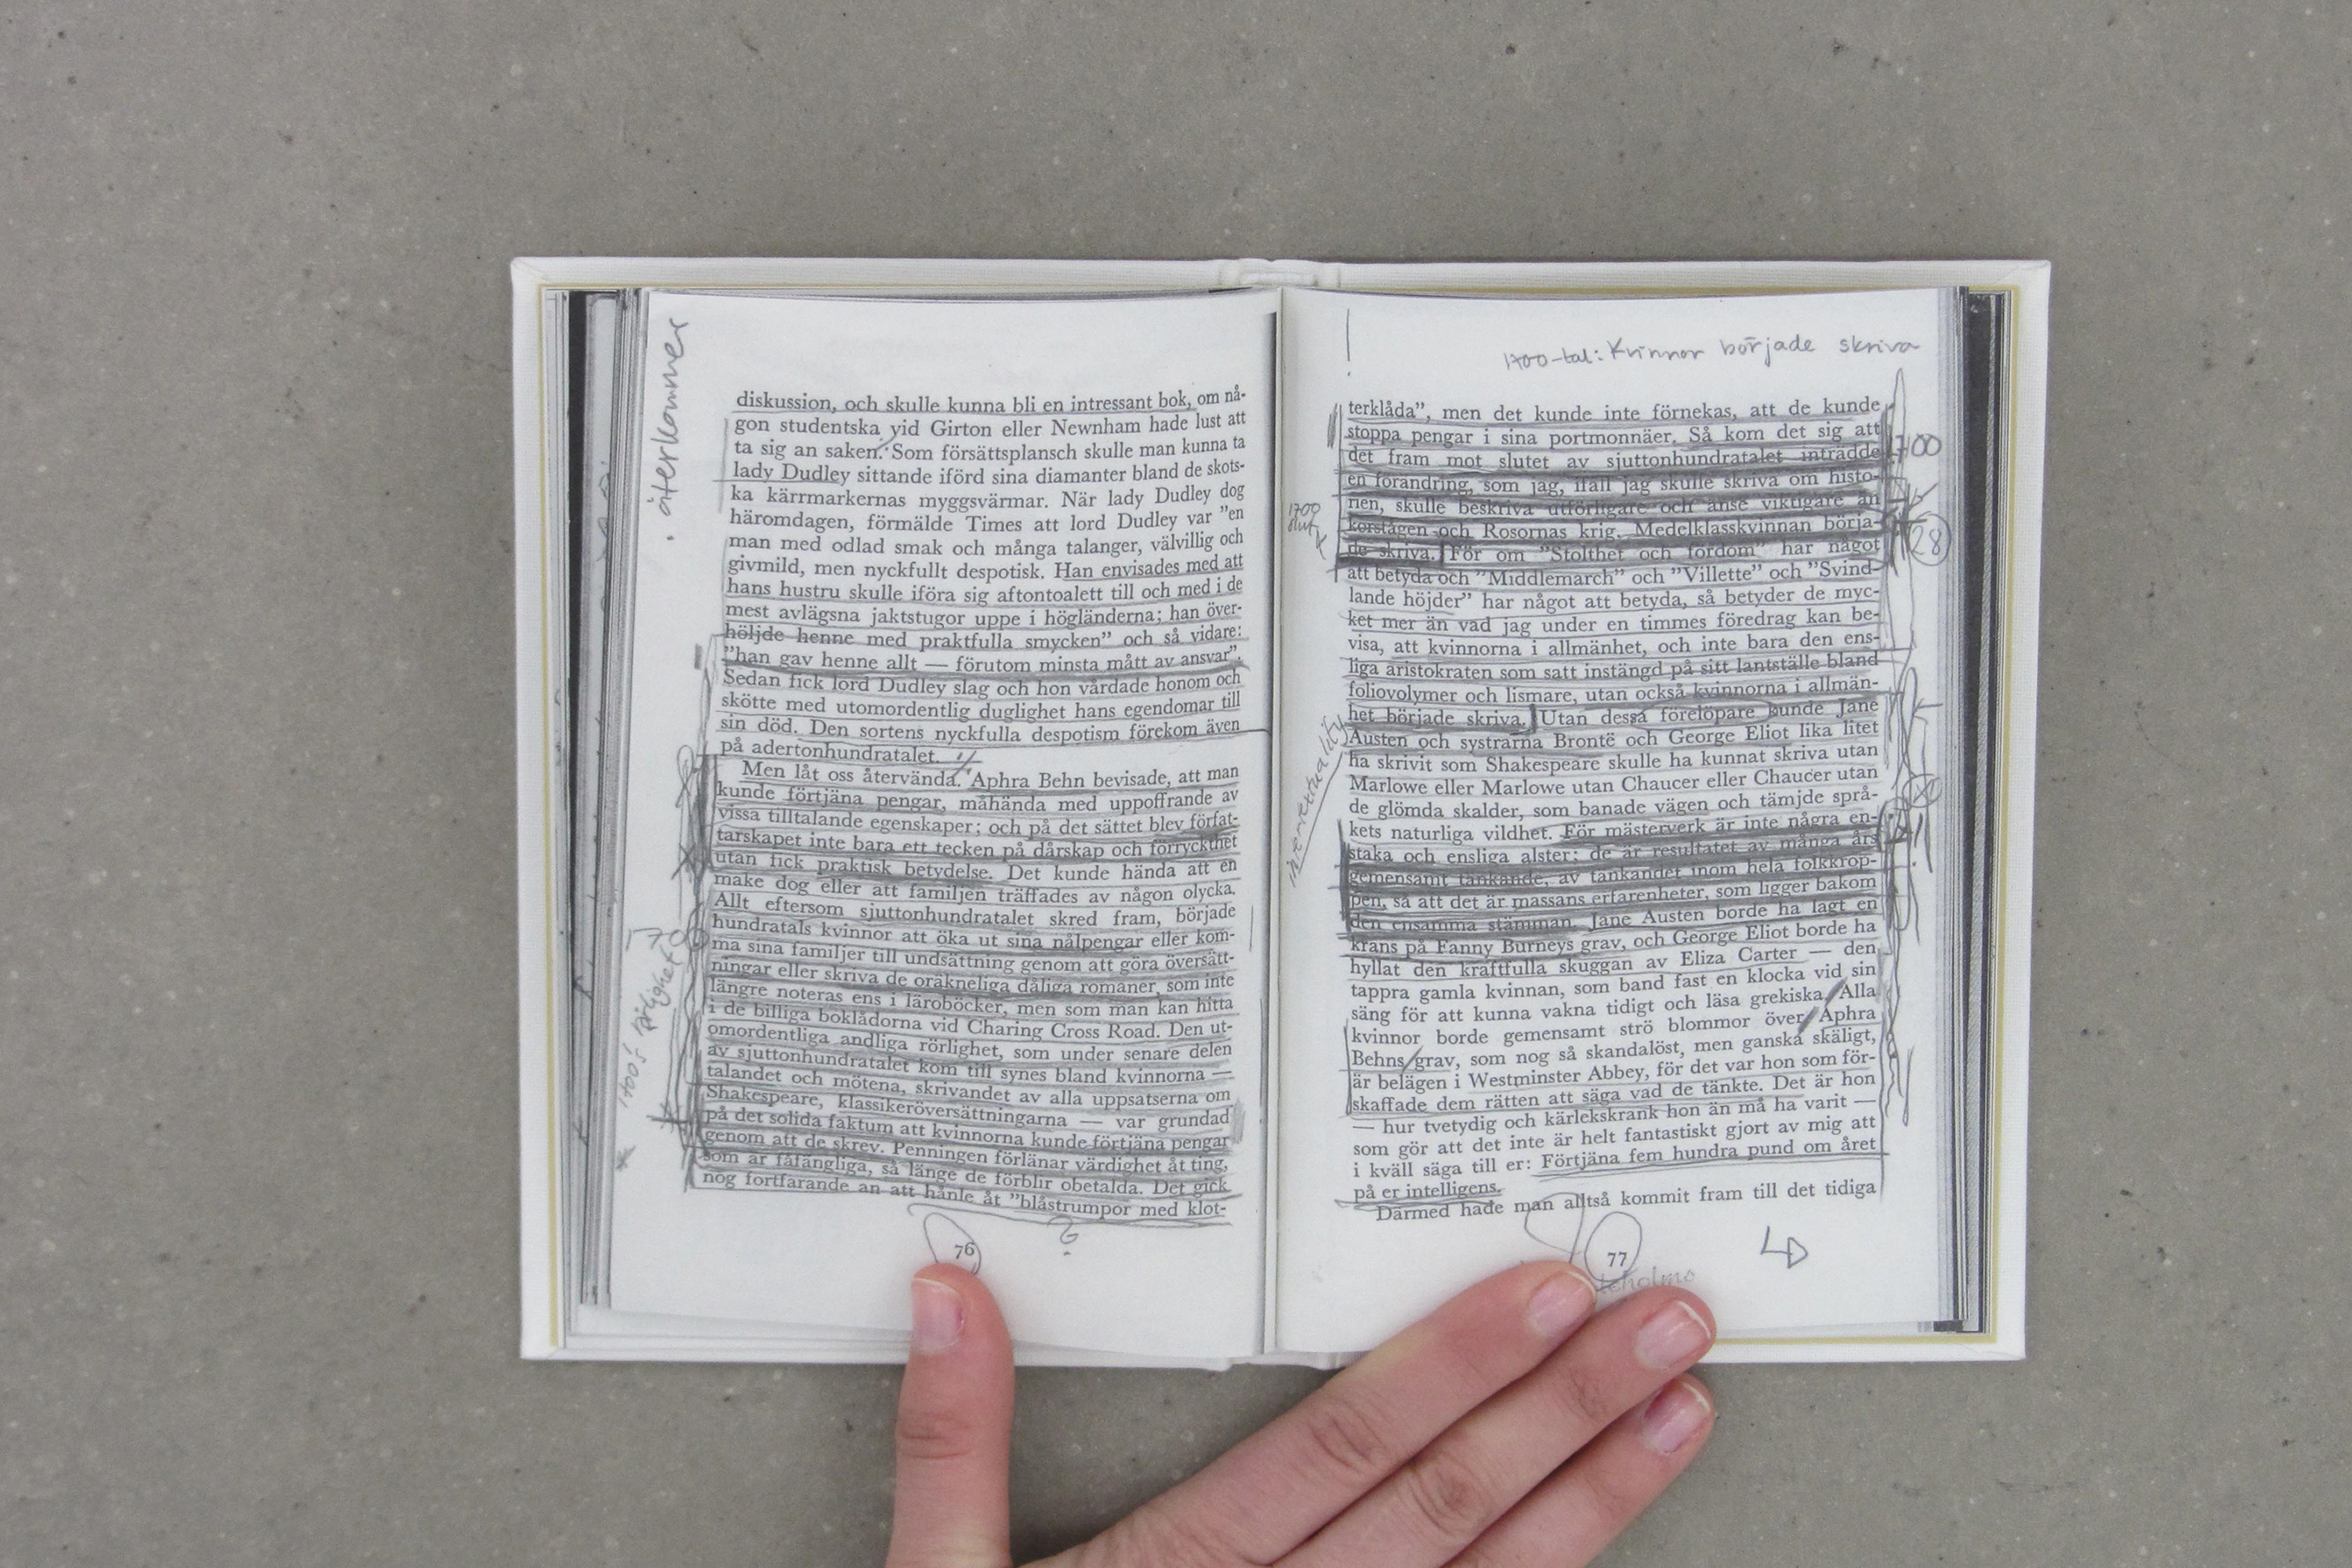 återkommer
diskussion, och skulle kunna bli en intressant bok, om nå-
gon studentska vid Girton eller Newnham hade lust att
ta sig an saken. Som försättsplansch skulle man kunna ta
lady Dudley sittande iförd sina diamanter bland de skots-
ka kärrmarkernas myggsvärmar. När lady Dudley dog
häromdagen, förmälde Times att lord Dudley var ”en
man med odlad smak och många talanger, välvillig och
givmild, men nyckfullt despotisk. Han envisades med att
hans hustru skulle iföra sig aftontoalett till och med i de
mest avlägsna jaktstugor uppe i högländerna; han över-
höljde henne med praktfulla smycken” och så vidare:
”han gav henne allt — förutom minsta mått av ansvar”.
Sedan fick lord Dudley slag och hon vårdade honom och
skötte med utomordentlig duglighet hans egendomar till
sin död. Den sortens nyckfulla despotism förekom även
på adertonhundratalet.
Men låt oss återvända. Aphra Behn bevisade, att man
kunde förtjäna pengar, måhända med uppoffrande av
vissa tilltalande egenskaper; och på det sättet blev förfat-
tarskapet inte bara ett tecken på dårskap och förryckthet
utan fick praktisk betydelse. Det kunde hända att en
make dog eller att familjen träffades av någon olycka.
Allt eftersom sjuttonhundratalet skred fram, började
hundratals kvinnor att öka ut sina nålpengar eller kom-
ma sina familjer till undsättning genom att göra översätt-
ningar eller skriva de oräkneliga dåliga romaner, som inte
längre noteras ens i läroböcker, men som man kan hitta
i de billiga boklådorna vid Charing Cross Road. Den ut-
omordentliga andliga rörlighet, som under senare delen
av sjuttonhundratalet kom till synes bland kvinnorna —
talandet och mötena, skrivandet av alla uppsatserna om
Shakespeare, klassikeröversättningarna — var grundad
på det solida faktum att kvinnorna kunde förtjäna pengar
genom att de skrev. Penningen förlänar värdighet åt ting,
som är fåfängliga, så länge de förblir obetalda. Det gick
nog fortfarande an att hånle åt ”blåstrumpor med klot-
?
76
1700-tal: Kvinnor började skriva
terklåda”, men det kunde inte förnekas, att de kunde
stoppa pengar i sina portmonnäer. Så kom det sig att
det fram mot slutet av sjuttonhundratalet inträdde
1700
en förändring, som jag, ifall jag skulle skriva om histo-
rien, skulle beskriva utförligare och anse viktigare än
1700
slut
korstågen och Rosornas krig. Medelklasskvinnan börja-
28
de skriva. För om ”Stolthet och fördom” har något
att betyda och ”Middlemarch” och ”Villette” och ”Svind-
lande höjder” har något att betyda, så betyder de myc-
ket mer än vad jag under en timmes föredrag kan be-
visa, att kvinnorna i allmänhet, och inte bara den ens-
liga aristokraten som satt instängd på sitt lantställe bland
foliovolymer och lismare, utan också kvinnorna i allmän-
het började skriva. Utan dessa förelöpare kunde Jane
Austen och systrarna Brontë och George Eliot lika litet
ha skrivit som Shakespeare skulle ha kunnat skriva utan
Marlowe eller Marlowe utan Chaucer eller Chaucer utan
de glömda skalder, som banade vägen och tämjde språ-
kets naturliga vildhet. För mästerverk är inte några en-
staka och ensliga alster; de är resultatet av många års
gemensamt tänkande, av tänkandet inom hela folkkrop-
pen, så att det är massans erfarenheter, som ligger bakom
den ensamma stämman. Jane Austen borde ha lagt en
krans på Fanny Burneys grav, och George Eliot borde ha
hyllat den kraftfulla skuggan av Eliza Carter — den
tappra gamla kvinnan, som band fast en klocka vid sin
säng för att kunna vakna tidigt och läsa grekiska. Alla
kvinnor borde gemensamt strö blommor över Aphra
Behns grav, som nog så skandalöst, men ganska skäligt,
är belägen i Westminster Abbey, för det var hon som för-
skaffade dem rätten att säga vad de tänkte. Det är hon
— hur tvetydig och kärlekskrank hon än må ha varit —
som gör att det inte är helt fantastiskt gjort av mig att
i kväll säga till er: Förtjäna fem hundra pund om året
på er intelligens.
Därmed hade man alltså kommit fram till det tidiga
77